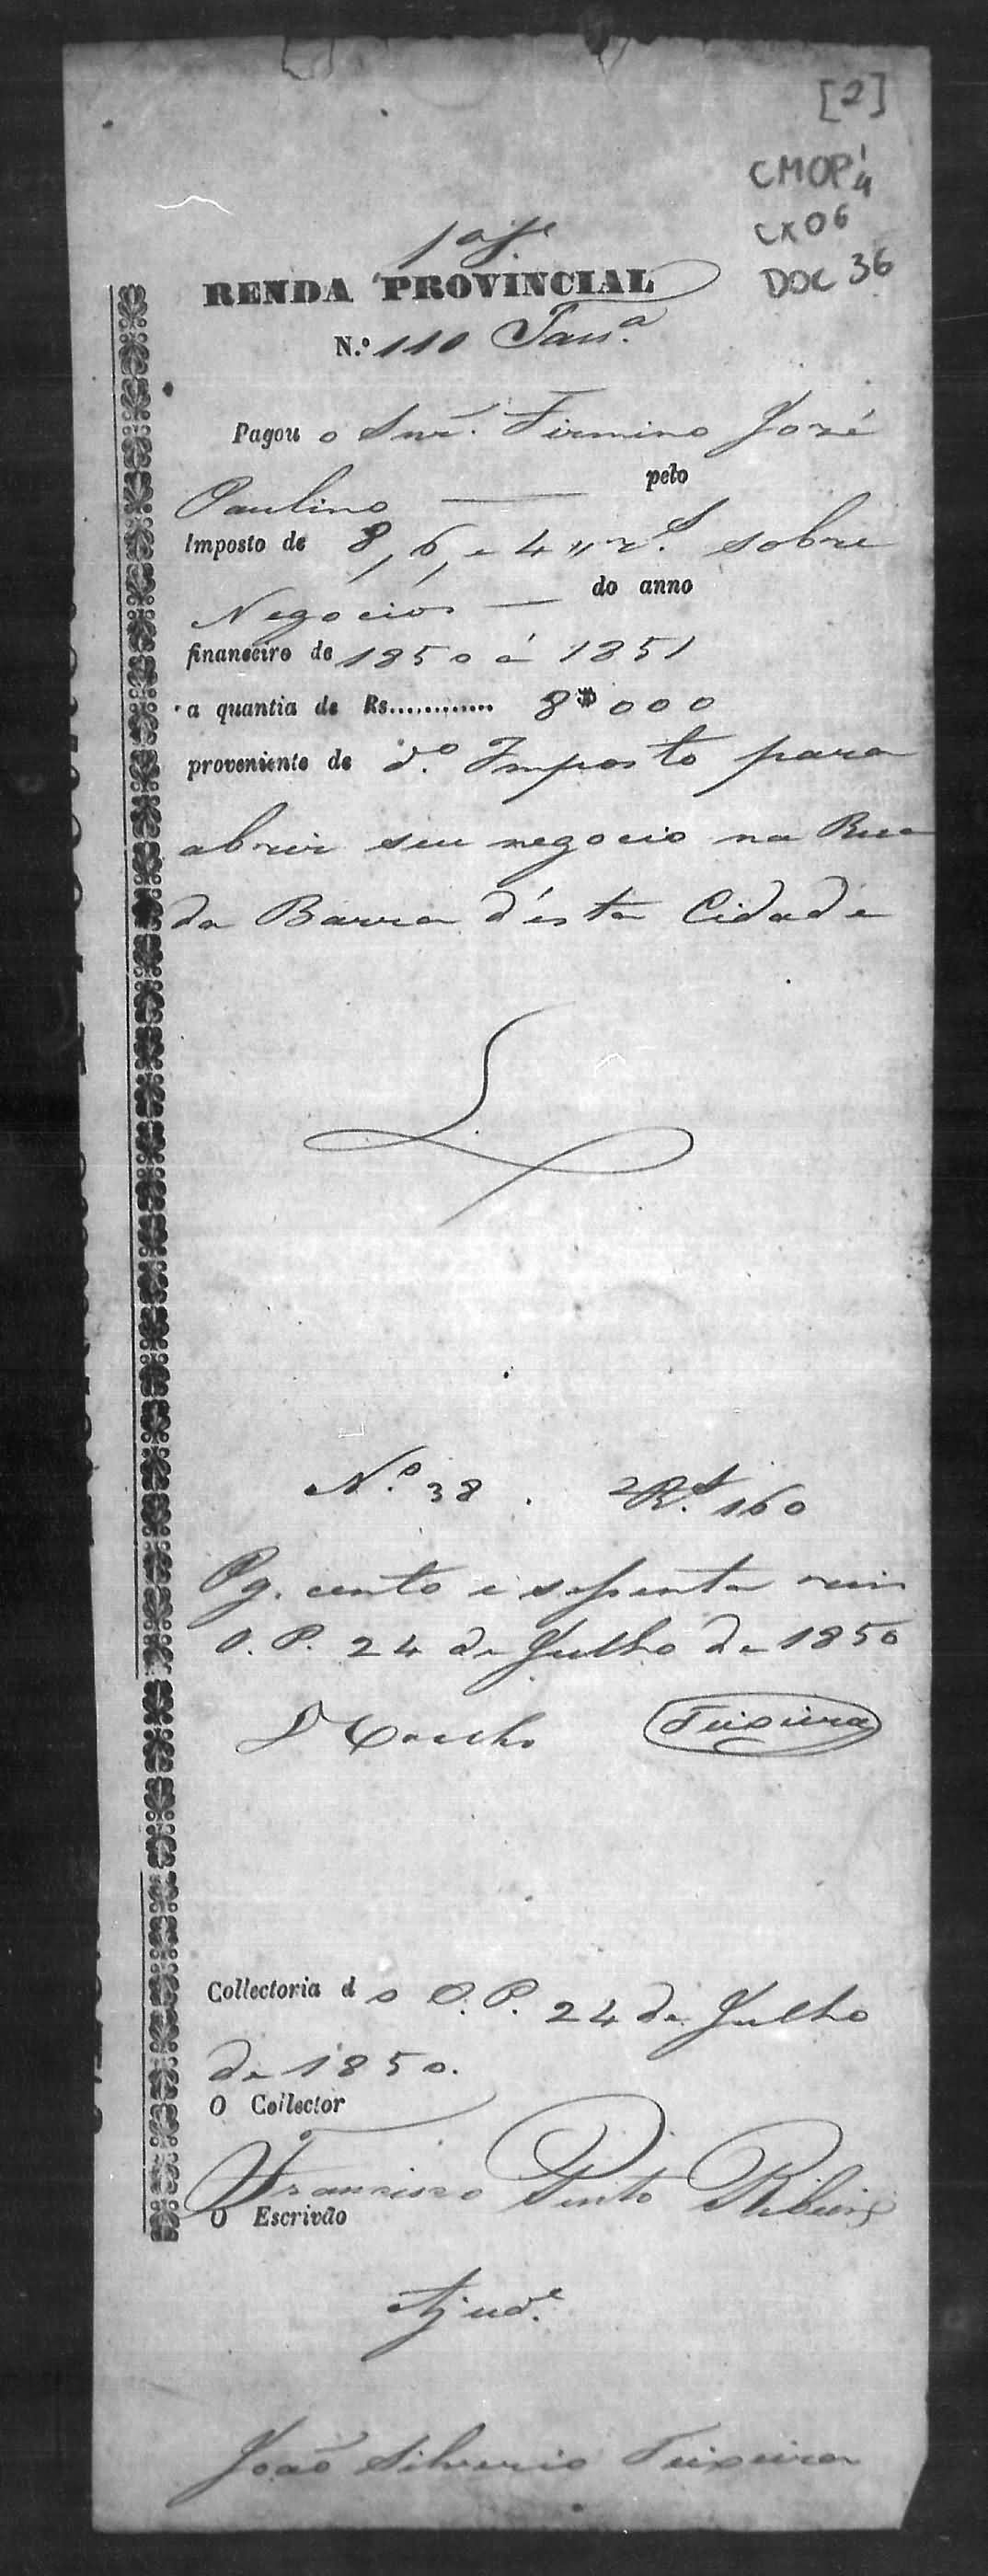 [2]
CMOP 1/4
CX06
DOC 36
RENDA PROVINCIAL
N.º 110
Pagou o Snr. Firmino José
pelo
Paulino
Imposto de 8, 6, e 4 " r.s sobre
do anno
Negocios
financeiro de 1850 á 1851
a quantia de Rs............. 8$000
proveniente de d.º Imposto para
abrir seu negocio na Rua
da Barra d'ésta Cidade
N.º 38. Rs. 160
Pg. cento e sessenta reis
O. P. 24 de Julho de 1850
Coelho Teixeira
Collectoria d o O. P. 24 de Julho
de 1850.
O Collector
Francisco Pinto Ribeiro
O Escrivão
Ajud.e
João Silverio Teixeira